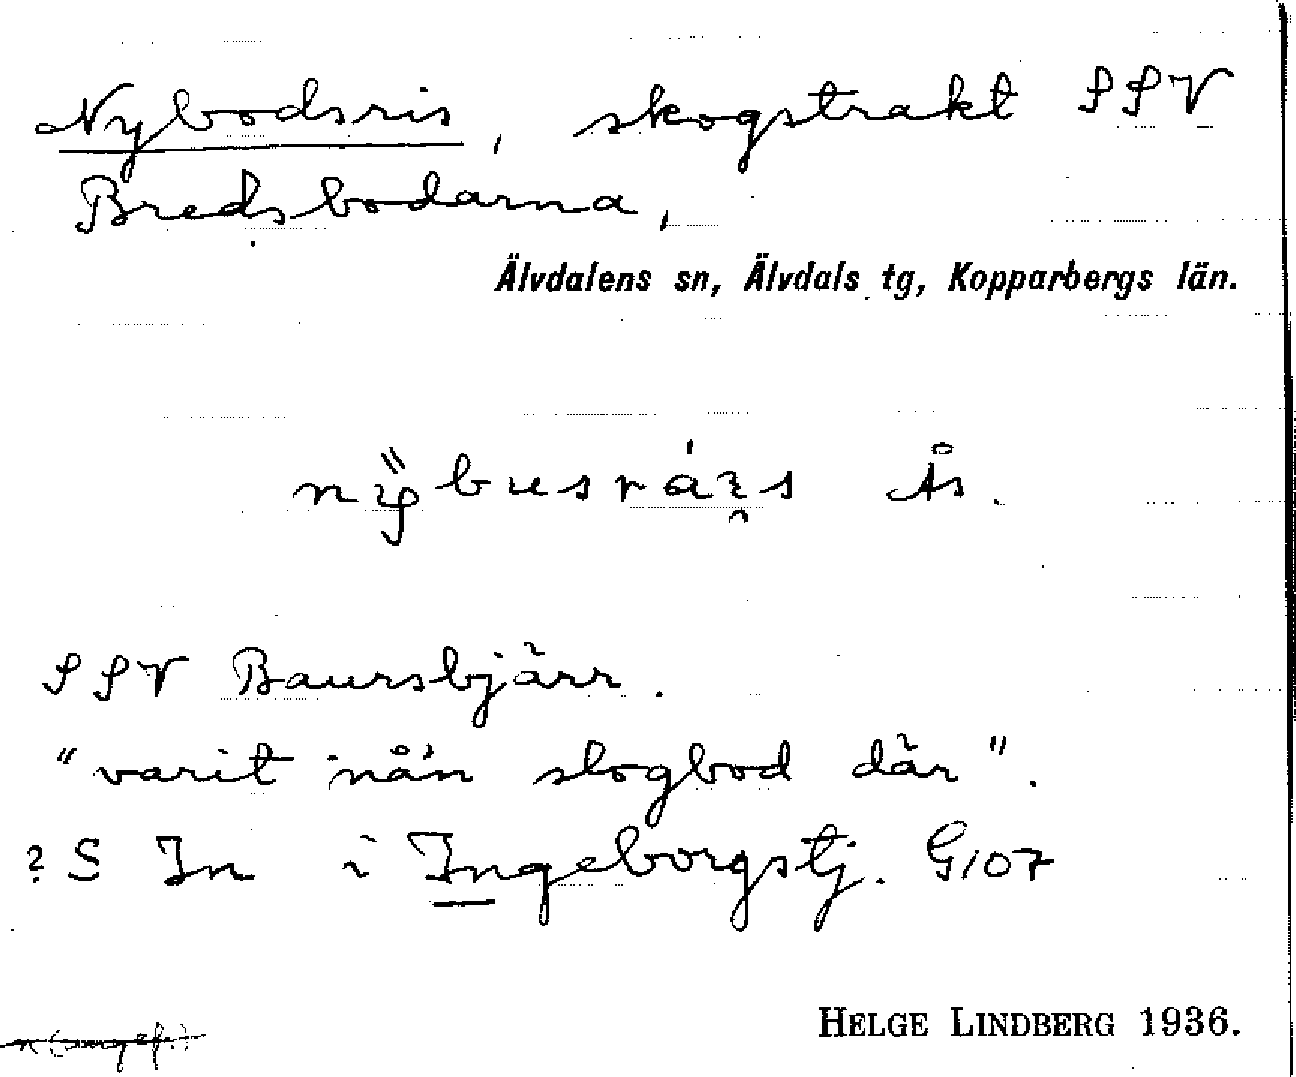 Nybodsris, skogstrakt SSV
Bredsbodarna,
Älvdalens sn, Älvdals tg, Kopparbergs län.
Ås.
SSV Baursbjärr.
"varit nån slogbod där".
? S In i Ingeborgstj. G107
HELGE LINDBERG 1936.